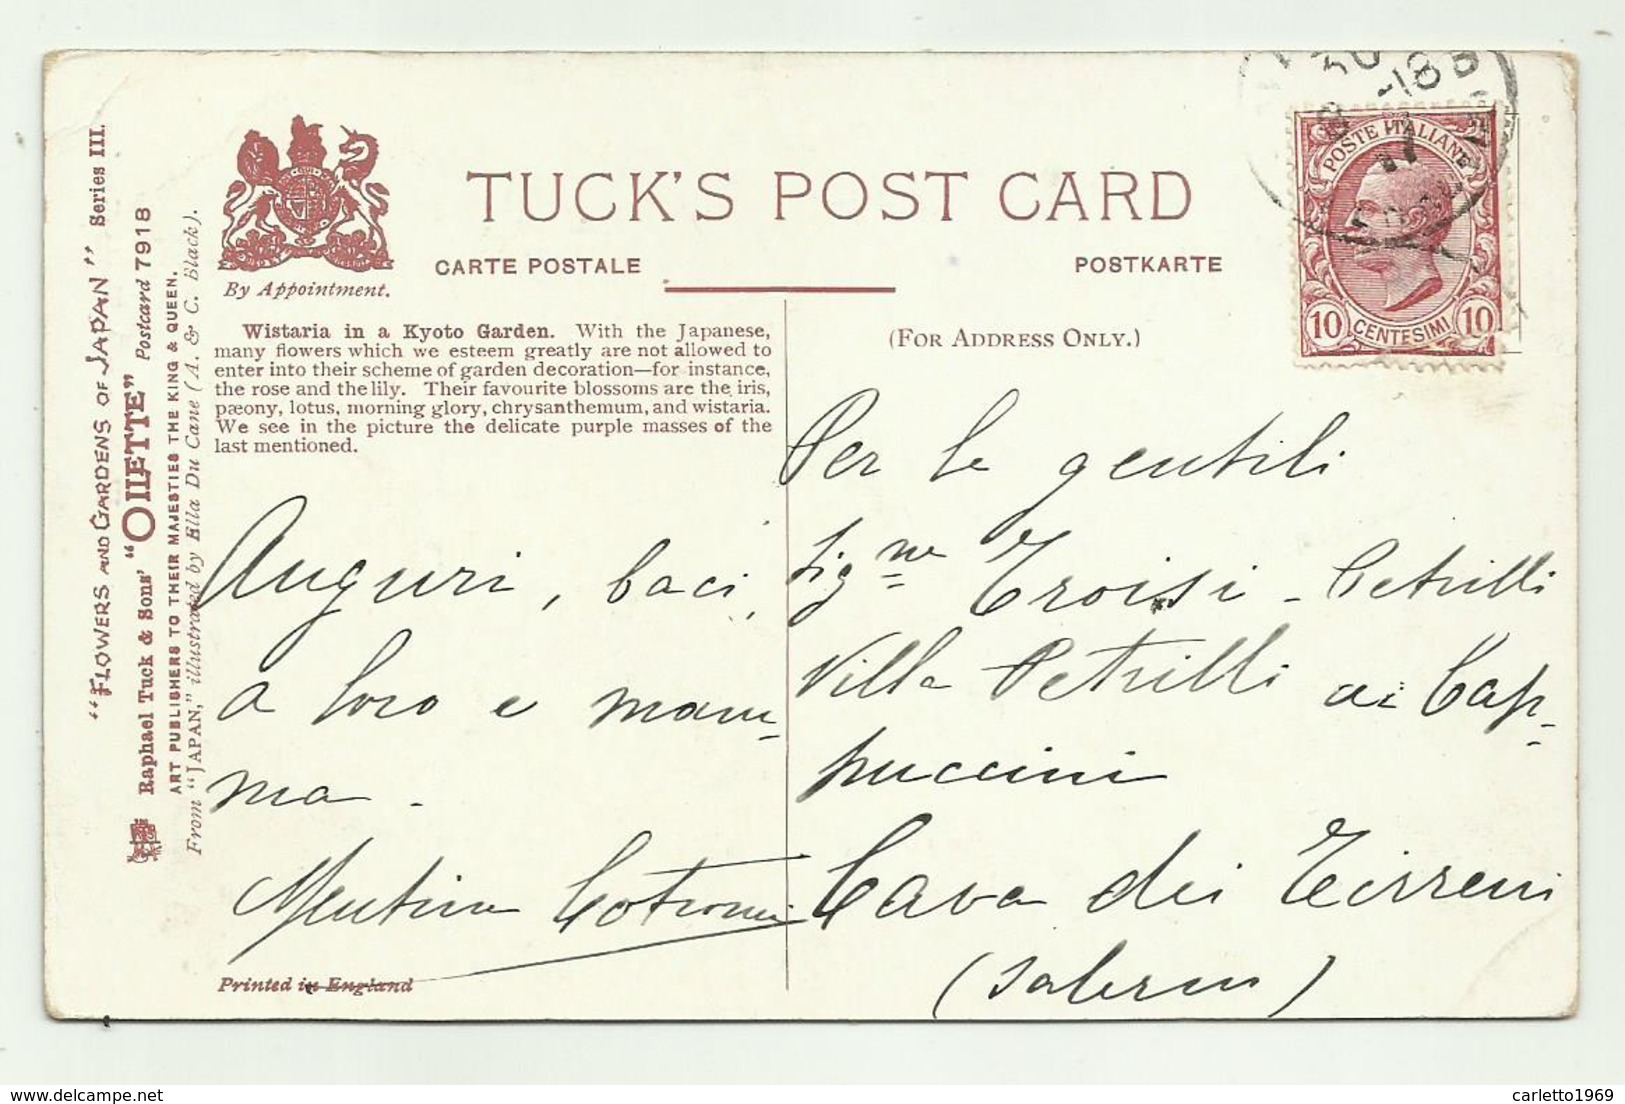 TUCK'S POST CARD
CARTE POSTALE
POSTKARTE
By Appointment.
(FOR ADDRESS ONLY.)
POSTE ITALIANE
10 CENTESIMI 10
"FLOWERS AND GARDENS OF JAPAN" Series III.
Raphael Tuck & Sons' "OILETTE" Postcard 7918
ART PUBLISHERS TO THEIR MAJESTIES THE KING & QUEEN.
From "JAPAN," illustrated by Ella Du Cane (A. & C. Black).
Wistaria in a Kyoto Garden. With the Japanese,
many flowers which we esteem greatly are not allowed to
enter into their scheme of garden decoration—for instance,
the rose and the lily. Their favourite blossoms are the iris,
pæony, lotus, morning glory, chrysanthemum, and wistaria.
We see in the picture the delicate purple masses of the
last mentioned.
Auguri, baci,
a loro e mam-
ma.
Printed in England
Per le gentili
Sig.ne Troisi - Petrilli
Villa Petrilli ai Cap-
puccini
Cava dei Tirreni
(Salerno)
carletto1969